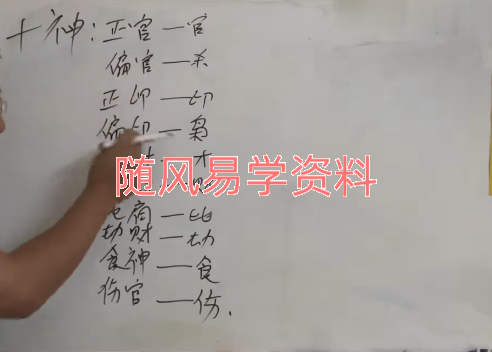 十神:正官—官
偏官—杀
正印—印
偏印—枭
—才
—财
比肩—比
劫财—劫
食神—食
伤官—伤.
随风易学资料